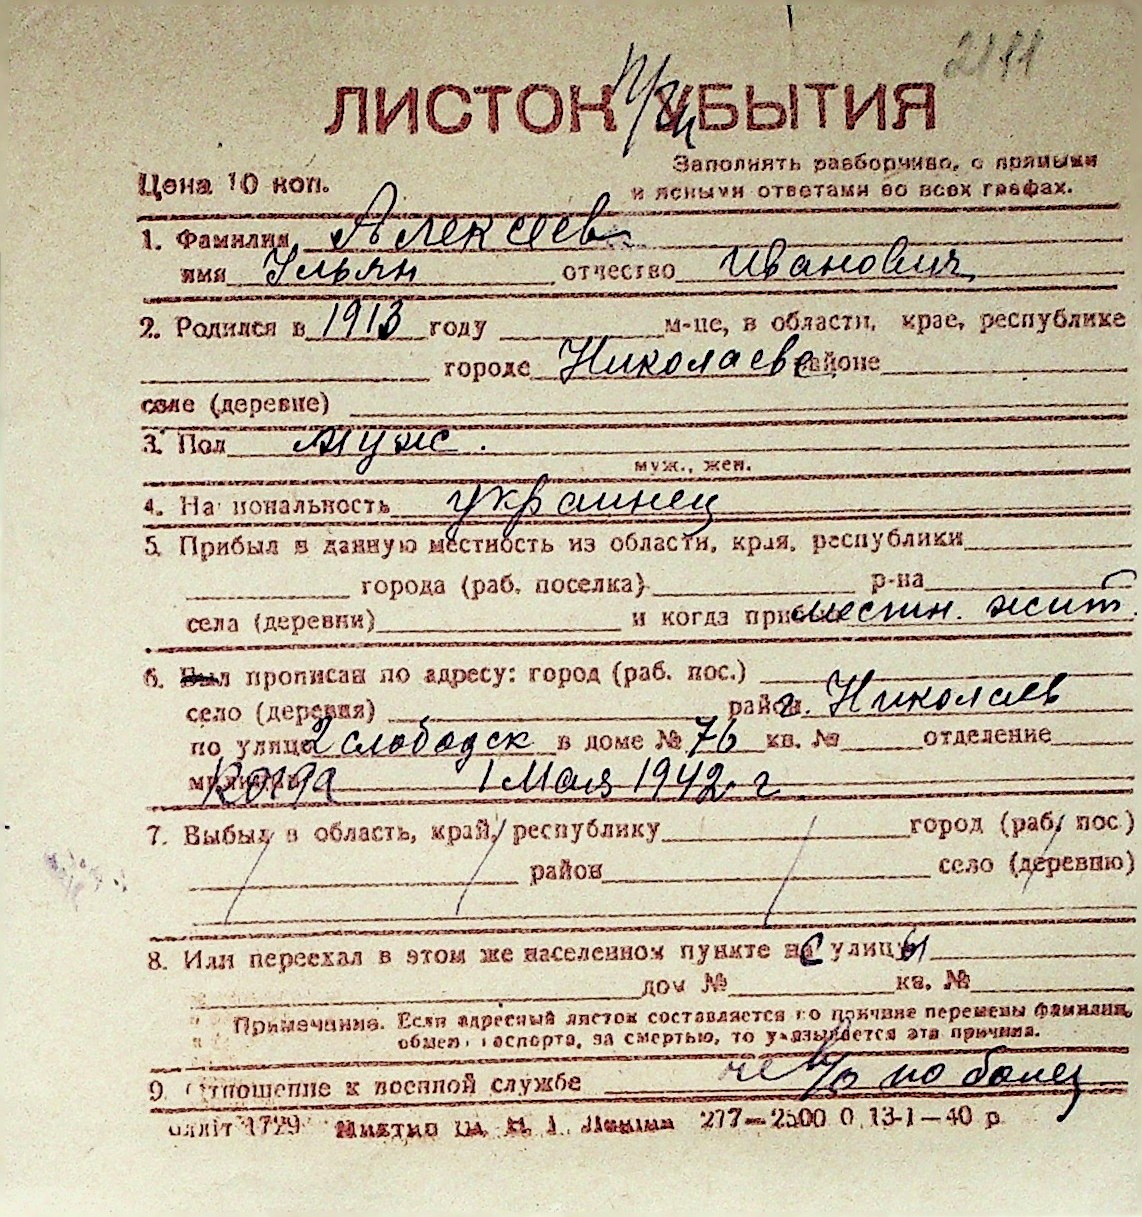 2191
ЛИСТОК УБЫТИЯ
Цена 10 коп.
Заполнять разборчиво, с прямыми
и ясными ответами во всех графах.
1. Фамилия Алексеев
имя Ульян отчество Иванович
2. Родился в 1913 году м-це, в области, крае, республике
городе Николаеве районе
селе (деревне)
3. Пол муж.
муж., жен.
4. Национальность украинец
5. Прибыл в данную местность из области, края, республики
города (раб. поселка) р-на
села (деревни) и когда местн. жит.
6. Был прописан по адресу: город (раб. пос.)
село (деревня) район г. Николаев
по улице 2 слободск в доме № 76 кв. № отделение
когда 1 Мая 1942 г
7. Выбыл в область, край, республику город (раб. пос.)
район село (деревню)
8. Или переехал в этом же населенном пункте с улицы
дом № кв. №
Примечание. Если адресный листок составляется по причине перемены фамилии,
обмена паспорта, за смертью, то указывается эта причина.
9. Отношение к военной службе нев/о по болез
1729 277—2500 0 13-1—40 р